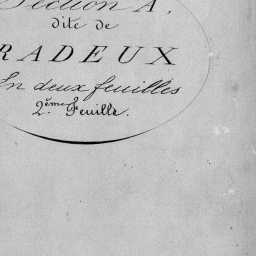 Section A,
dite de
RADEUX
En deux feuilles
2.ème Feuille.